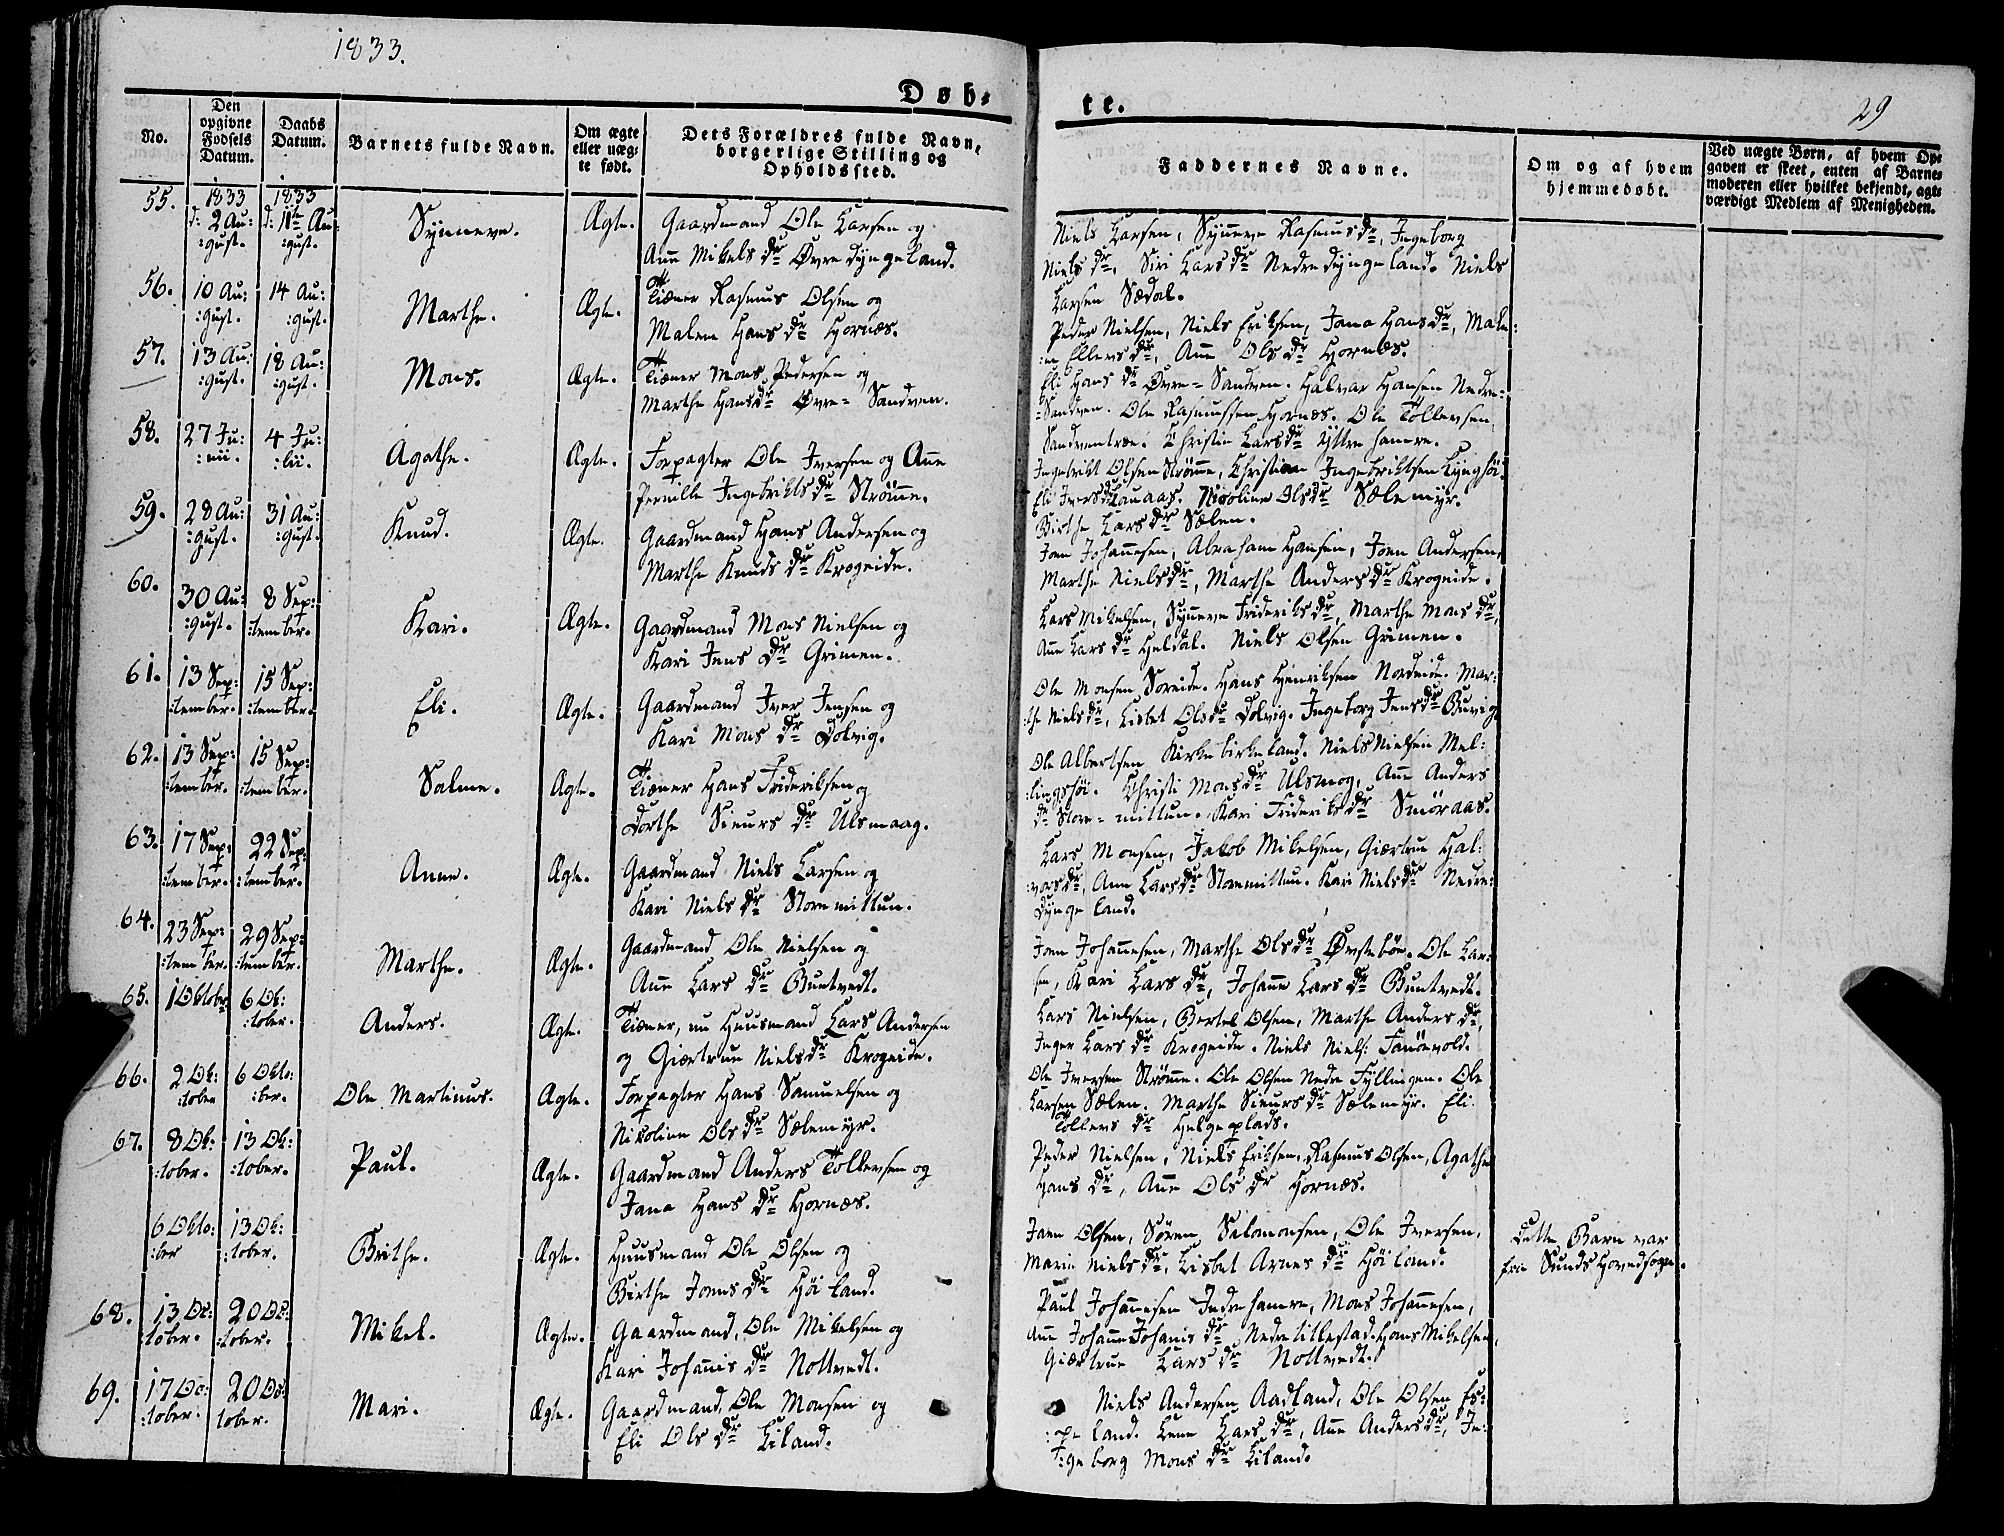 1833.
Døb-
te.
29
No.
Den
opgivne
Fødsels
Datum.
Daabs
Datum.
Barnets fulde Navn.
Om ægte
eller uæg-
te født.
Dets Forældres fulde Navn,
borgerlige Stilling og
Opholdssted.
Faddernes Navne.
Om og af hvem
hjemmedøbt.
Ved uægte Børn, af hvem Op-
gaven er skeet, enten af Barne-
moderen eller hvilket bekjendt, agt-
værdigt Medlem af Menigheden.
55.
1833
d: 2 Au:
:gust.
1833
d: 11te Au:
:gust.
Synneve.
Ægte.
Gaardmand Ole Larsen og
Anne Mikels dr Øvre Dyngeland.
Niels Larsen, Synneve Rasmus dr, Ingeborg
Niels dr, Siri Lars dr Nedre Dyngeland. Niels
Larsen Sædal.
56.
10 Au:
:gust.
14 Au:
:gust.
Marthe.
Ægte.
Tiener Rasmus Olsen og
Malene Hans dr Hornæs.
Peder Nielsen, Niels Eriksen, Jana Hans dr, Male:
:ne Ellens dr, Anne Ols dr Hornæs.
57.
13 Au:
:gust.
18 Au:
:gust.
Mons.
Ægte.
Tiener Mons Pedersen og
Marthe Hans dr Øvre = Sandven.
Eli Hans dr Øvre = Sandven. Halvar Hansen Nedre=
=Sandven. Ole Rasmussen Hornæs. Ole Tollevsen
Sandventræe. Christie Lars dr Yttre hamre.
58.
27 Ju:
:nii.
4 Ju:
:lii.
Agathe.
Ægte.
Forpagter Ole Iversen og Anne
Pernille Ingebrikts dr Strømme.
Ingebrikt Olsen Strømme, Christian Ingebriktsen Lynghøi.
Eli Ivers dr Lauaas. Nicoline Ols dr Sælemyr.
Birthe Lars dr Sælen.
59.
28 Au:
:gust.
31 Au:
:gust.
Knud.
Ægte.
Gaardmand Hans Andersen og
Marthe Knuds dr Krogeide.
Joen Johannesen, Abraham Hansen, Joen Andersen,
Marthe Niels dr, Marthe Anders dr Krogeide.
60.
30 Au:
:gust.
8 Sep:
:tember.
Kari.
Ægte.
Gaardmand Mons Nielsen og
Kari Jens dr Grimen.
Lars Mikelsen, Synneve Frideriks dr, Marthe Mons dr,
Anne Lars dr Heldal. Niels Olsen Grimen.
61.
13 Sep:
:tember.
15 Sep:
:tember.
Eli.
Ægte.
Gaardmand Iver Jensen og
Kari Mons dr Dolvig.
Ole Monsen Soreide. Hans Henriksen Nordeide. Mar:
:the Niels dr, Lisbet Ols dr Dolvig. Ingeborg Jens dr Buvig
62.
13 Sep:
:tember.
15 Sep:
:tember.
Salme.
Ægte.
Tiener Hans Frideriksen og
Dorthe Sieurs dr Ulsmaag.
Ole Albertsen Kirkebirkeland. Niels Nielsen Mel:
:lingshøi. Christi Mons dr Ulsmog, Anne Anders
dr Store = mittun. Kari Frideriks dr Smøraas.
63.
17 Sep:
:tember.
22 Sep:
:tember.
Anne.
Ægte.
Gaardmand Niels Larsen og
Kari Niels dr Storemittun.
Lars Monsen, Jakob Mikelsen, Giærtrue Hal:
:vors dr, Anne Lars dr Storemittun. Kari Niels dr Nedre:
Dyngeland.
64.
23 Sep:
:tember.
29 Sep:
:tember.
Marthe.
Ægte.
Gaardmand Ole Nielsen og
Anne Lars dr Buntvedt.
Joen Johannesen, Marthe Ols dr Øvstebøe. Ole Lar:
sen, Kari Lars dr, Johanne Lars dr Buntvedt.
65.
1 Oktober
6 Ok:
:tober.
Anders.
Ægte.
Tiener, nu Huusmand Lars Andersen
og Giærtrue Niels dr Krogeide.
Lars Nielsen, Bertel Olsen, Marthe Anders dr,
Inger Lars dr Krogeide. Niels Niels: Fanøevold.
66.
2 Ok:
:tober
6 Okto:
:ber.
Ole Martinus.
Ægte.
Forpagter Hans Samuelsen og
Nikoline Ols dr Sælemyr.
Ole Iversen Strømme. Ole Olsen Nedre Fyllingen. Ole
Larsen Sælen. Marthe Sieurs dr Sælemyr. Eli
Tollevs dr Helgeplads.
67.
8 Ok:
:tober.
13 Ok:
:tober.
Paul.
Ægte.
Gaardmand Anders Tollevsen og
Jana Hans dr Hornæs.
Peder Nielsen, Niels Eriksen, Rasmus Olsen, Agathe
Hans dr, Anne Ols dr Hornæs.
6 Okto:
:ber
13 Ok:
:tober.
Brithe.
Ægte.
Huusmand Ole Olsen og
Birthe Joens dr Høiland.
Joen Olsen, Søren Salomonsen, Ole Iversen,
Marie Niels dr, Lisbet Arnes dr Høiland.
Dette Barn var
fra Sunds Hovedsogn.
68.
13 Oc:
:tober.
20 Oc:
:tober.
Mikel.
Ægte.
Gaardmand, Ole Mikelsen og
Kari Johannis dr Nottvedt.
Paul Johannesen Indrehamre, Mons Johannesen,
Anne Johanne Johanis dr Nedre titlestad. Hans Mikelsen,
Giærtrue Lars dr Nottvedt.
69.
17 Oc:
:tober.
20 Oc:
tober.
Mari.
Ægte.
Gaardmand, Ole Monsen og
Eli Ols dr Liland.
Niels Andersen Aadland, Ole Olsen Es:
:peland. Lene Lars dr, Anne Anders dr, In:
:geborg Mons dr Liland.